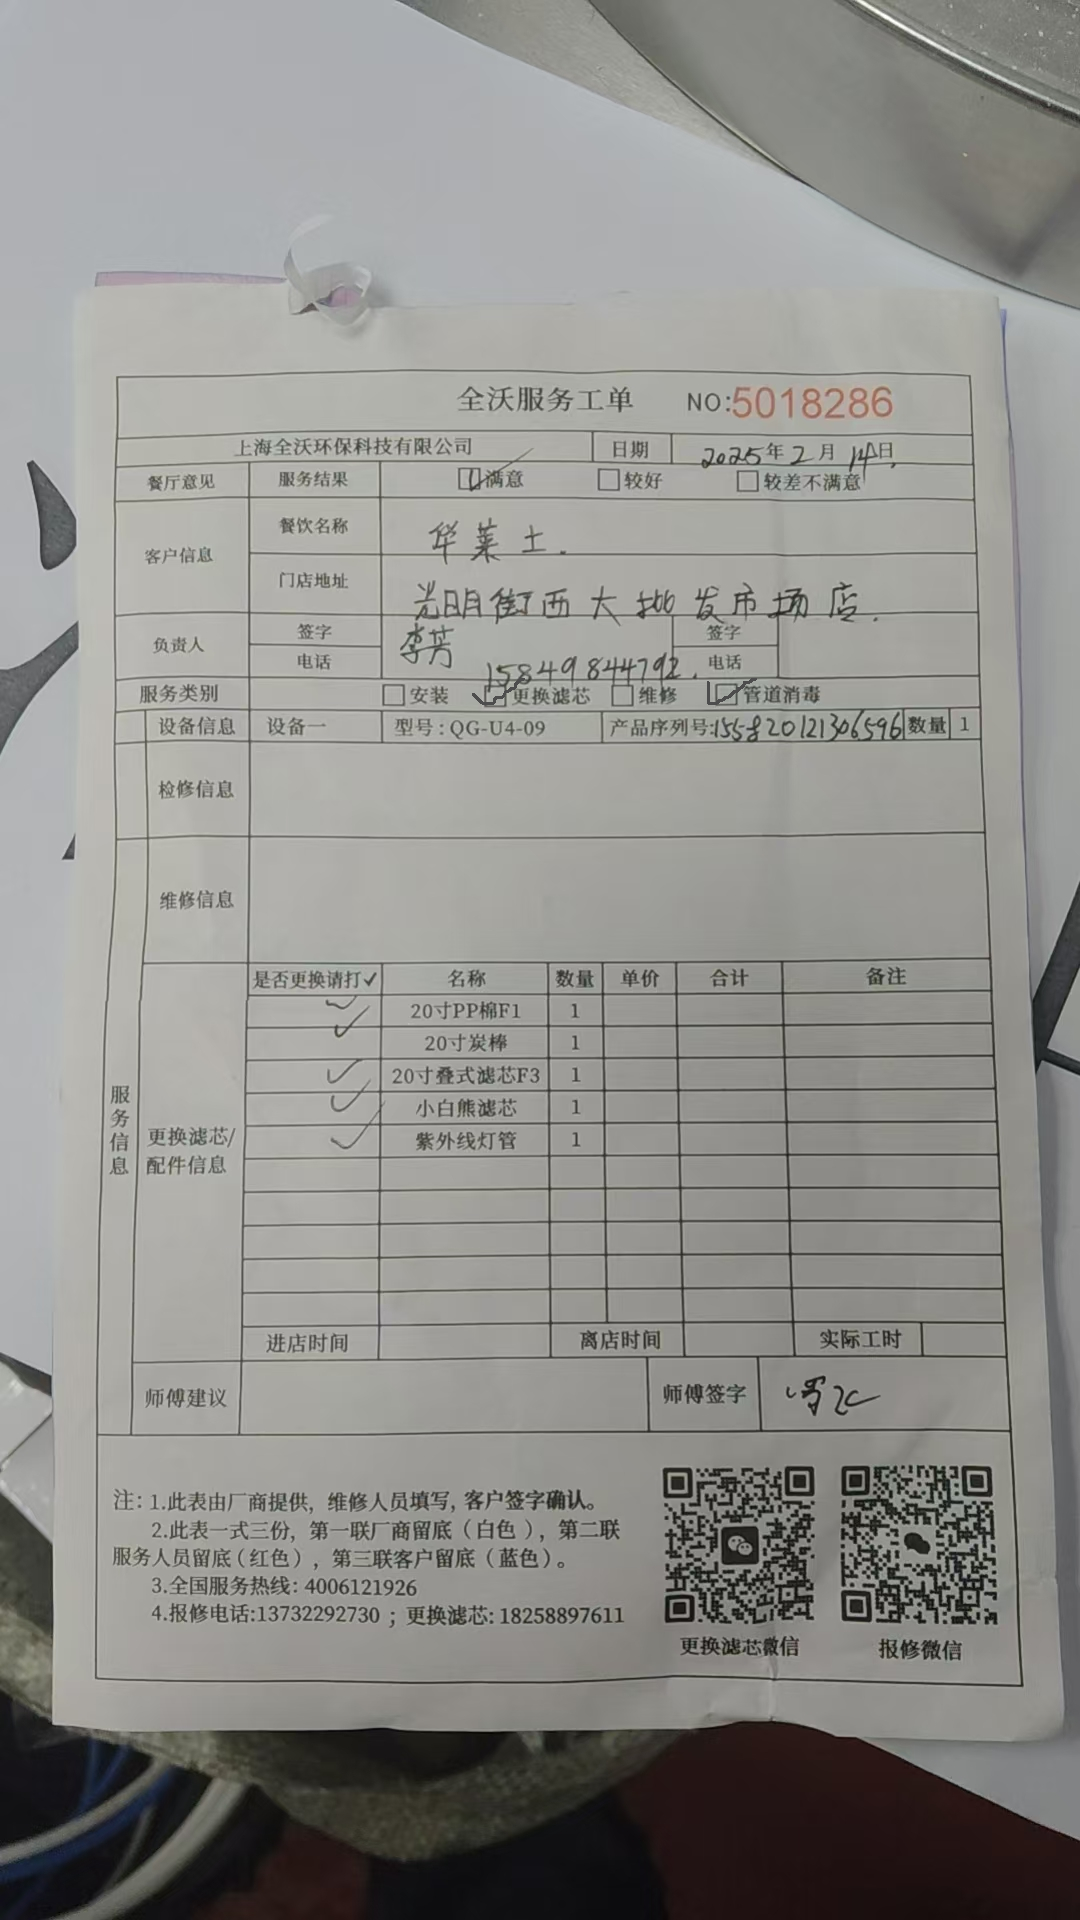 全沃服务工单 NO:5018286
上海全沃环保科技有限公司 日期 2025年2月14日
餐厅意见 服务结果 ☑满意 □较好 □较差不满意
客户信息 餐饮名称 华莱士.
门店地址 光明街西大批发市场店.
负责人 签字 李芳 签字
电话 15849844792. 电话
服务类别 □安装 ☑更换滤芯 □维修 ☑管道消毒
设备信息 设备一 型号:QG-U4-09 产品序列号:155820121306596 数量 1
检修信息
维修信息
服务信息
更换滤芯/配件信息
是否更换请打✓ 名称 数量 单价 合计 备注
✓ 20寸PP棉F1 1
✓ 20寸炭棒 1
✓ 20寸叠式滤芯F3 1
✓ 小白熊滤芯 1
✓ 紫外线灯管 1
进店时间 离店时间 实际工时
师傅建议 师傅签字
注: 1.此表由厂商提供, 维修人员填写, 客户签字确认。
2.此表一式三份, 第一联厂商留底(白色), 第二联
服务人员留底(红色), 第三联客户留底(蓝色)。
3.全国服务热线: 4006121926
4.报修电话:13732292730 ; 更换滤芯: 18258897611
更换滤芯微信 报修微信